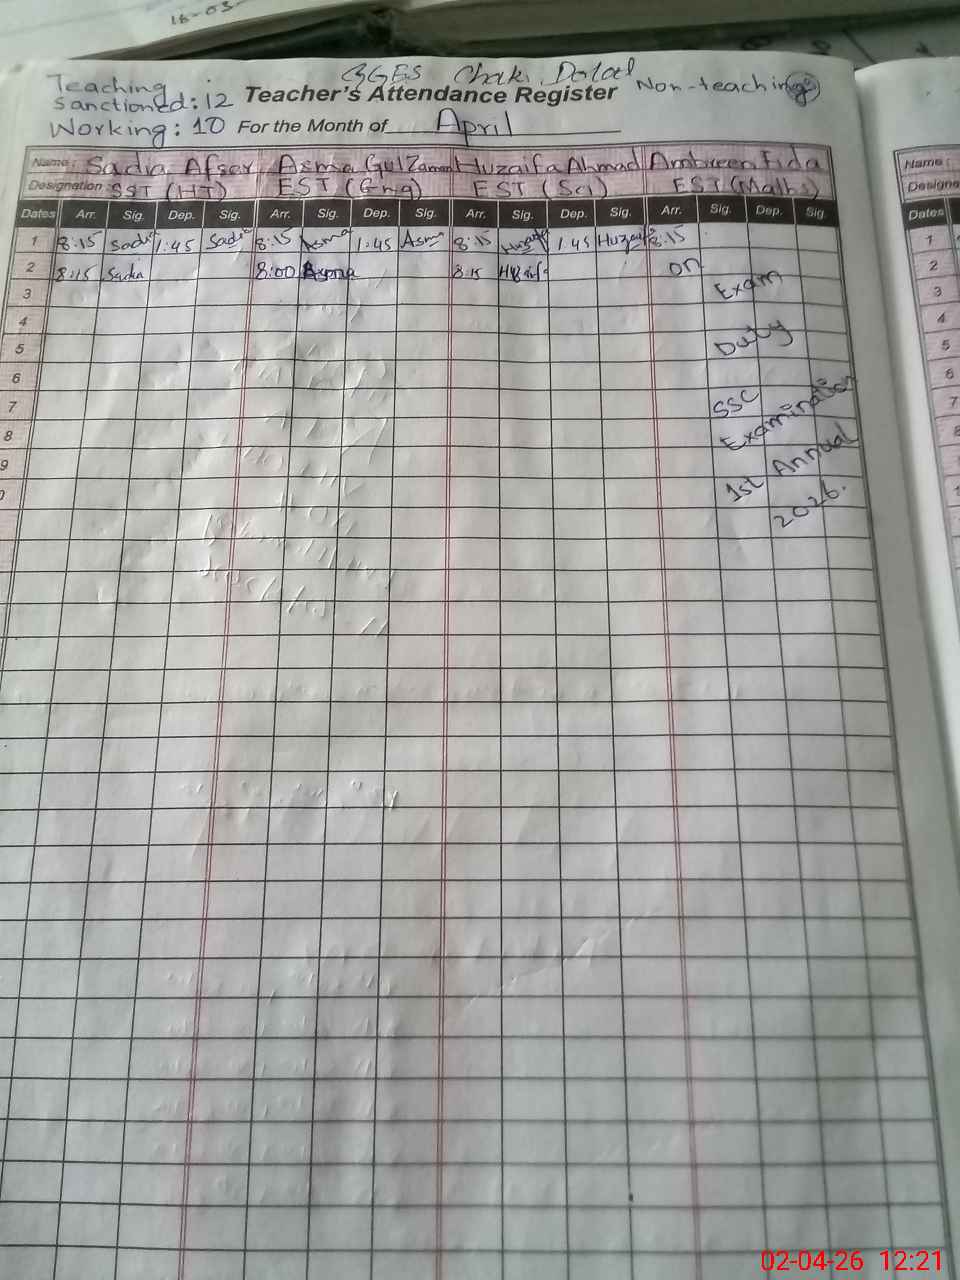 18-03
GGES Chaki Dalal
Teaching
Sanctioned: 12 Teacher's Attendance Register Non-teaching
Working: 10 For the Month of April
Name: Sadia Afser Asma Gul Zaman Huzaifa Ahmad Ambreen Fida Name:
Designation: SST (HT) EST (Eng) EST (Sci) EST (Maths)
Dates Arr. Sig. Dep. Sig. Arr. Sig. Dep. Sig. Arr. Sig. Dep. Sig. Arr. Sig. Dep. Sig. Dates
1 8:15 Sadia 1:45 Sadia 8:15 Asma 1:45 Asma 8:15 Huzaifa 1:45 Huzaifa 8:15 1
2 8:15 Sadia 8:00 Asma 8:15 on 2
3 Exam 3
4 4
5 Duty 5
6 6
7 SSC 7
8 Examination 8
9 1st Annual
2026.
02-04-26 12:21